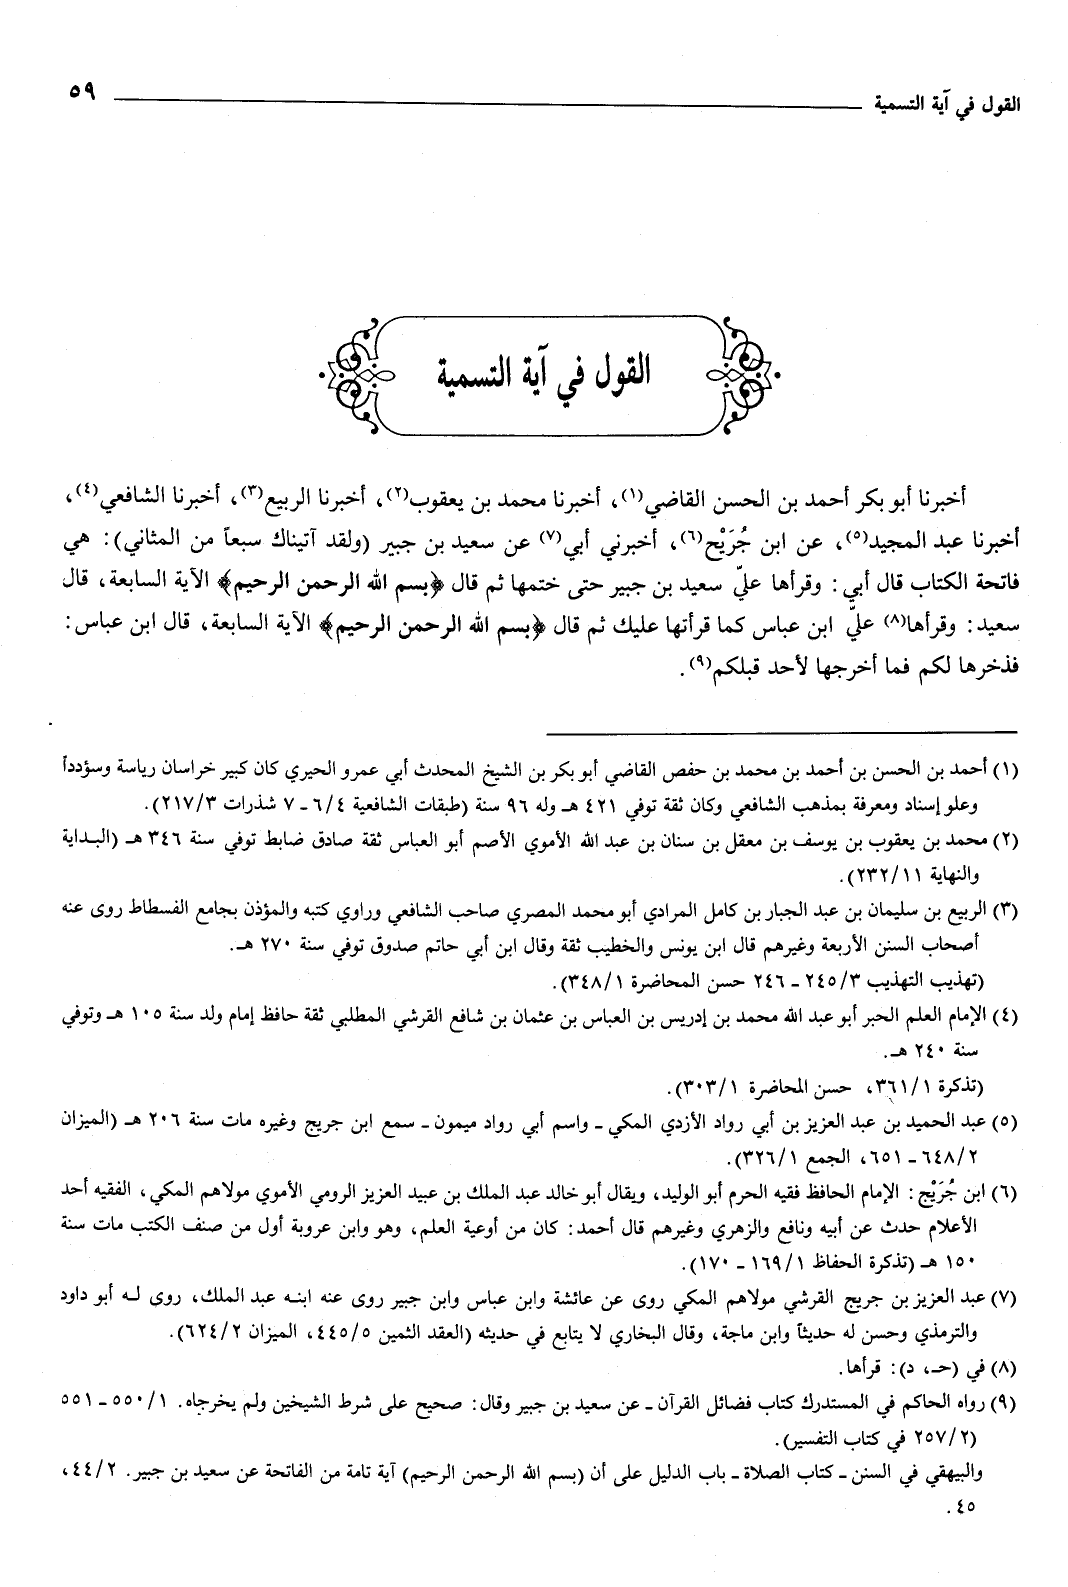 القول في آية التسمية ٥٩
القول في آية التسمية
أخبرنا أبو بكر أحمد بن الحسن القاضي(١)، أخبرنا محمد بن يعقوب(٢)، أخبرنا الربيع(٣)، أخبرنا الشافعي(٤)،
أخبرنا عبد المجيد(٥)، عن ابن جُرَيْح(٦)، أخبرني أبي(٧) عن سعيد بن جبير (ولقد آتيناك سبعاً من المثاني): هي
فاتحة الكتاب قال أبي: وقرأها عليّ سعيد بن جبير حتى ختمها ثم قال ﴿بسم الله الرحمن الرحيم﴾ الآية السابعة، قال
سعيد: وقرأها(٨) عليّ ابن عباس كما قرأتها عليك ثم قال ﴿بسم الله الرحمن الرحيم﴾ الآية السابعة، قال ابن عباس:
فذخرها لكم فما أخرجها لأحد قبلكم(٩).
(١) أحمد بن الحسن بن أحمد بن محمد بن حفص القاضي أبو بكر بن الشيخ المحدث أبي عمرو الحيري كان كبير خراسان رياسة وسؤدداً
وعلو إسناد ومعرفة بمذهب الشافعي وكان ثقة توفي ٤٢١ هـ وله ٩٦ سنة (طبقات الشافعية ٦/٤ ـ ٧ شذرات ٢١٧/٣).
(٢) محمد بن يعقوب بن يوسف بن معقل بن سنان بن عبد الله الأموي الأصم أبو العباس ثقة صادق ضابط توفي سنة ٣٤٦ هـ (البداية
والنهاية ٢٣٢/١١).
(٣) الربيع بن سليمان بن عبد الجبار بن كامل المرادي أبو محمد المصري صاحب الشافعي وراوي كتبه والمؤذن بجامع الفسطاط روى عنه
أصحاب السنن الأربعة وغيرهم قال ابن يونس والخطيب ثقة وقال ابن أبي حاتم صدوق توفي سنة ٢٧٠ هـ.
(تهذيب التهذيب ٢٤٥/٣ ـ ٢٤٦ حسن المحاضرة ٣٤٨/١).
(٤) الإمام العلم الحبر أبو عبد الله محمد بن إدريس بن العباس بن عثمان بن شافع القرشي المطلبي ثقة حافظ إمام ولد سنة ١٠٥ هـ وتوفي
سنة ٢٤٠ هـ.
(تذكرة ٣٦١/١، حسن المحاضرة ٣٠٣/١).
(٥) عبد الحميد بن عبد العزيز بن أبي رواد الأزدي المكي ـ واسم أبي رواد ميمون ـ سمع ابن جريج وغيره مات سنة ٢٠٦ هـ (الميزان
٦٤٨/٢ ـ ٦٥١، الجمع ٣٢٦/١).
(٦) ابن جُرَيْج: الإمام الحافظ فقيه الحرم أبو الوليد، ويقال أبو خالد عبد الملك بن عبيد العزيز الرومي الأموي مولاهم المكي، الفقيه أحد
الأعلام حدث عن أبيه ونافع والزهري وغيرهم قال أحمد: كان من أوعية العلم، وهو وابن عروبة أول من صنف الكتب مات سنة
١٥٠ هـ (تذكرة الحفاظ ١٦٩/١ ـ ١٧٠).
(٧) عبد العزيز بن جريج القرشي مولاهم المكي روى عن عائشة وابن عباس وابن جبير روى عنه ابنه عبد الملك، روى له أبو داود
والترمذي وحسن له حديثاً وابن ماجة، وقال البخاري لا يتابع في حديثه (العقد الثمين ٤٤٥/٥، الميزان ٦٢٤/٢).
(٨) في (حـ، د): قرأها.
(٩) رواه الحاكم في المستدرك كتاب فضائل القرآن ـ عن سعيد بن جبير وقال: صحيح على شرط الشيخين ولم يخرجاه. ٥٥٠/١ ـ ٥٥١
(٢٥٧/٢ في كتاب التفسير).
والبيهقي في السنن ـ كتاب الصلاة ـ باب الدليل على أن (بسم الله الرحمن الرحيم) آية تامة من الفاتحة عن سعيد بن جبير. ٤٤/٢،
٤٥.